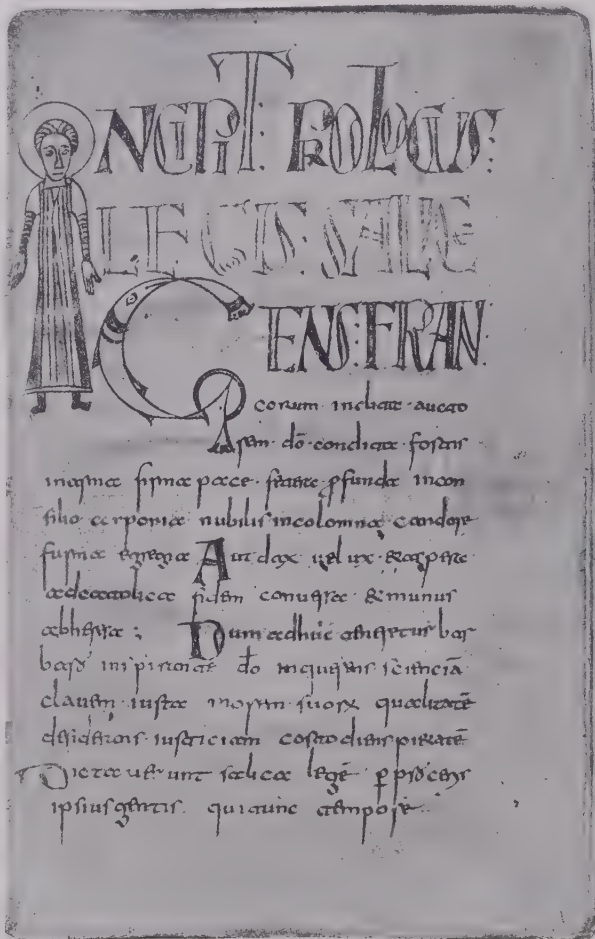 INCIPIT PROLOGUS:
LEGIS: SALICE
GENS: FRAN
corum · inclita · aucto
A sem · dō · condita · fortis
in arma firma pace · fetere ꝓfunda in con
silio corporia nubilis incolomna candore
furma egregia Aut dax uelux · & aspere
ad ecatolica fidem conuersa · & munus
ab heresa ; Dum adhuic teneretur bar
bars̄ inspirante dō inquerens sciencia
clauem · iusta morem · suorꝝ qualitatē
desiderans · iusticiam costodiens pietatē
Dictauerunt salica legē ꝑ ꝓs̄ ceris
ipsius gentis. qui tunc tempore